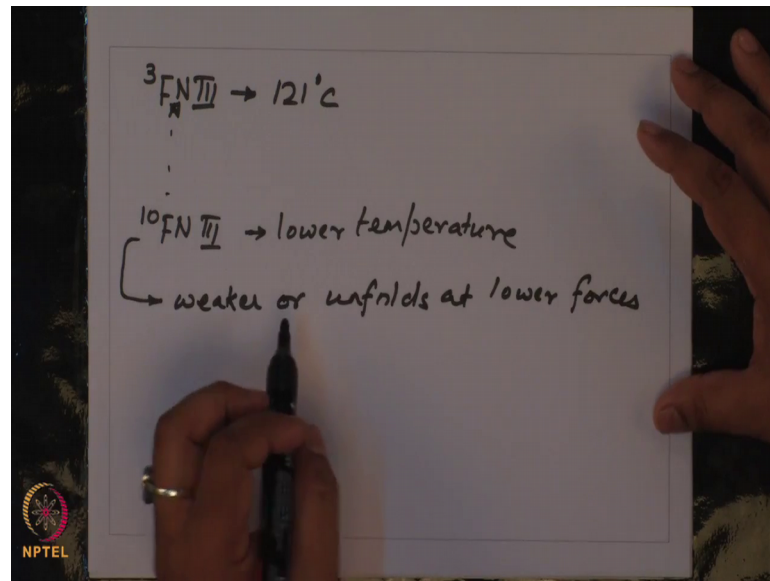 ³FNIII → 121°C
¹⁰FNIII → lower temperature
→ weaker or unfolds at lower forces
NPTEL